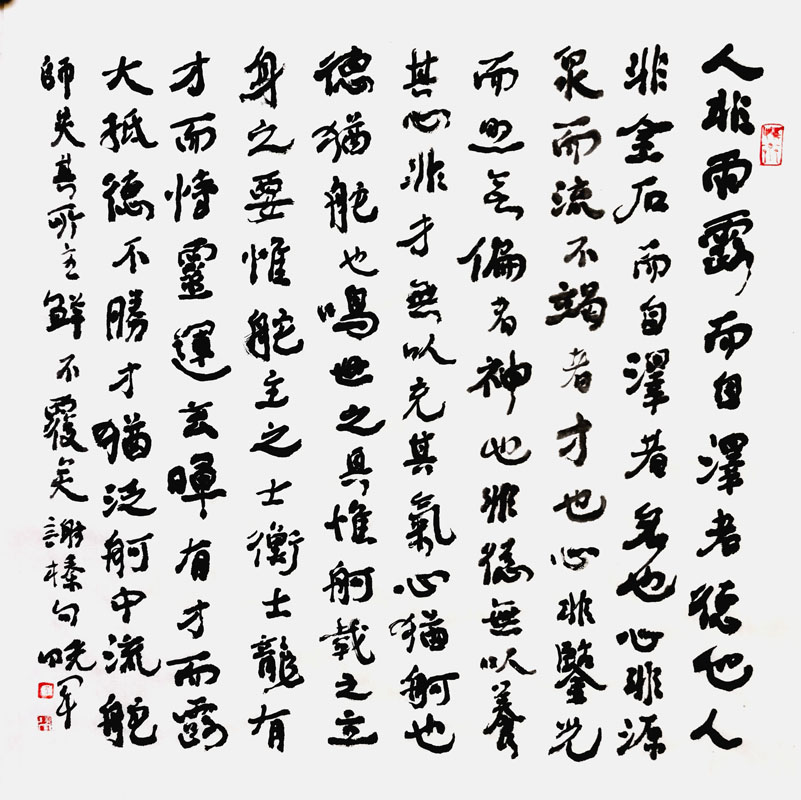 人非雨露而自澤者德也人
非金石而自澤者名也心非源
泉而流不竭者才也心非鑒光
而照无偏者神也非德無以養
其心非才無以充其氣心猶舸也
德猶舵也鳴世之具惟舸載之立
身之要惟舵主之士衡士龍有
才而恃靈運玄暉有才而露
大抵德不勝才猶泛舸中流舵
師失其所主鮮不覆矣謝榛句曉軍